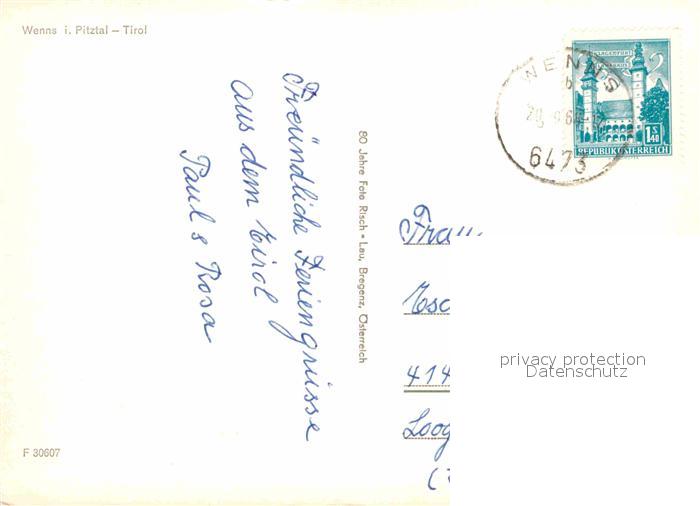 Wenns i. Pitztal – Tirol
Freundliche Feriengrüsse
aus dem Tirol
Paul & Rosa
80 Jahre Foto Risch-Lau, Bregenz, Österreich
WENNS
b
6473
KLAGENFURT
REPUBLIK ÖSTERREICH
1 S 40
414
privacy protection
Datenschutz
F 30607